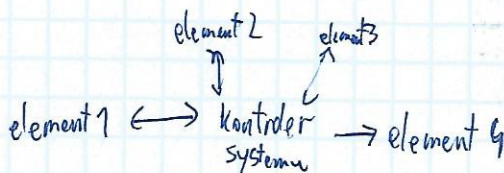 element 2
element 3
element 1
kontroler
systemu
element 4